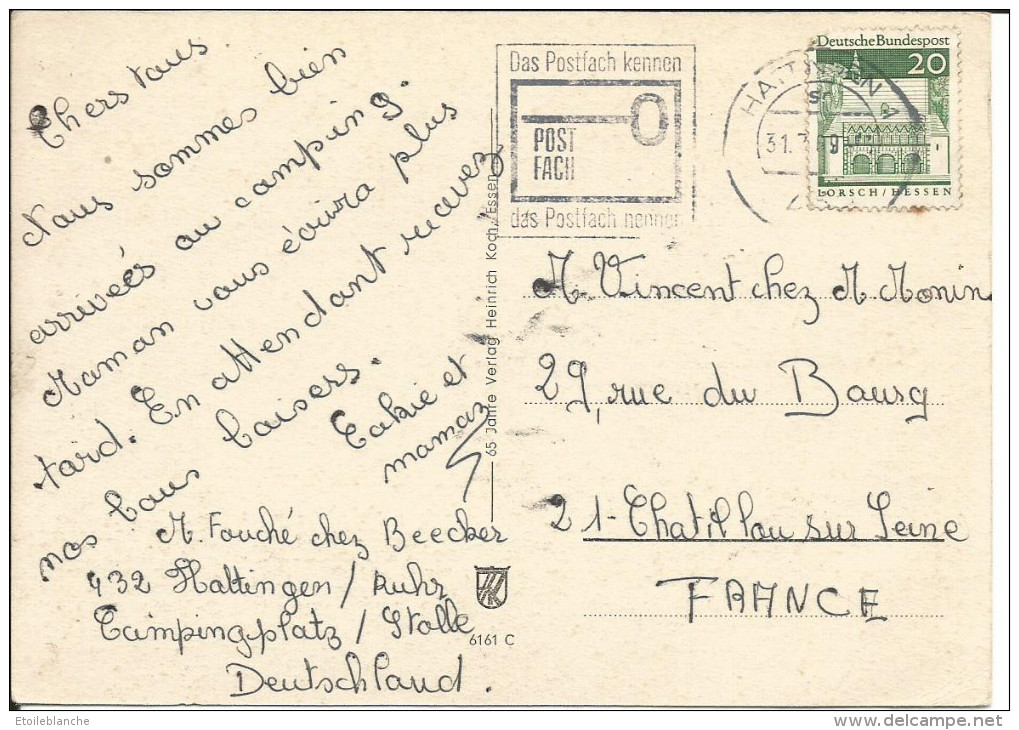 Chers tous
Nous sommes bien
arrivés au camping.
Maman vous écrira plus
tard. En attendant recevez
nos bons baisers.
et
mamaz
M. Fouché chez Beecker
432 Hattingen / Ruhr
Campingplatz / Stolle
Deutschland.
65 Jahre Verlag Heinrich Koch, Essen
6161 C
Das Postfach kennen
POST
FACH
das Postfach nennen
31.7
Deutsche Bundespost
20
LORSCH / HESSEN
M. Vincent chez M Monin
29, rue du Bourg
21 - Chatillon sur Seine
FRANCE
Etoileblanche
delcampe.net